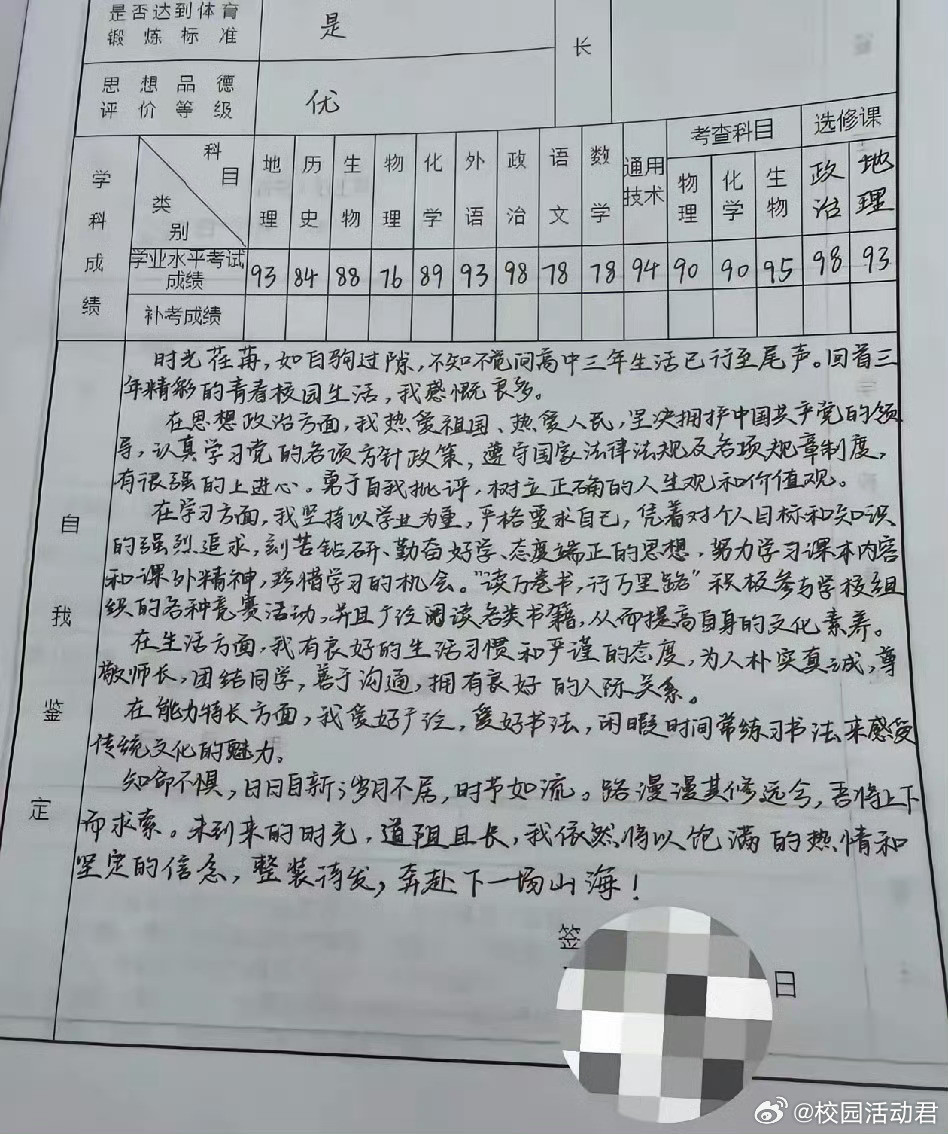 是否达到体育锻炼标准 是 长
思想品德评价等级 优
学科成绩 科目 类别 地理 历史 生物 物理 化学 外语 政治 语文 数学 通用技术 考查科目 物理 化学 生物 选修课 政治 地理
学业水平考试成绩 93 84 88 76 89 93 98 78 78 94 90 90 95 98 93
补考成绩
自我鉴定
时光荏苒,如白驹过隙,不知不觉间高中三年生活已行至尾声。回首三
年精彩的青春校园生活,我感慨良多。
在思想政治方面,我热爱祖国、热爱人民,坚决拥护中国共产党的领
导,认真学习党的各项方针政策,遵守国家法律法规及各项规章制度,
有很强的上进心。勇于自我批评,树立正确的人生观和价值观。
在学习方面,我坚持以学业为重,严格要求自己,凭着对个人目标和知识
的强烈追求,刻苦钻研、勤奋好学、态度端正的思想,努力学习课本内容
和课外精神,珍惜学习的机会。“读万卷书,行万里路”积极参与学校组
织的各种竞赛活动,并且广泛阅读各类书籍,从而提高自身的文化素养。
在生活方面,我有良好的生活习惯和严谨的态度,为人朴实真诚,尊
敬师长,团结同学,善于沟通,拥有良好的人际关系。
在能力特长方面,我爱好广泛,爱好书法,闲暇时间常练习书法来感受
传统文化的魅力。
知命不惧,日日自新;岁月不居,时节如流。路漫漫其修远兮,吾将上下
而求索。未到来的时光,道阻且长,我依然将以饱满的热情和
坚定的信念,整装待发,奔赴下一场山海!
签
日
@校园活动君